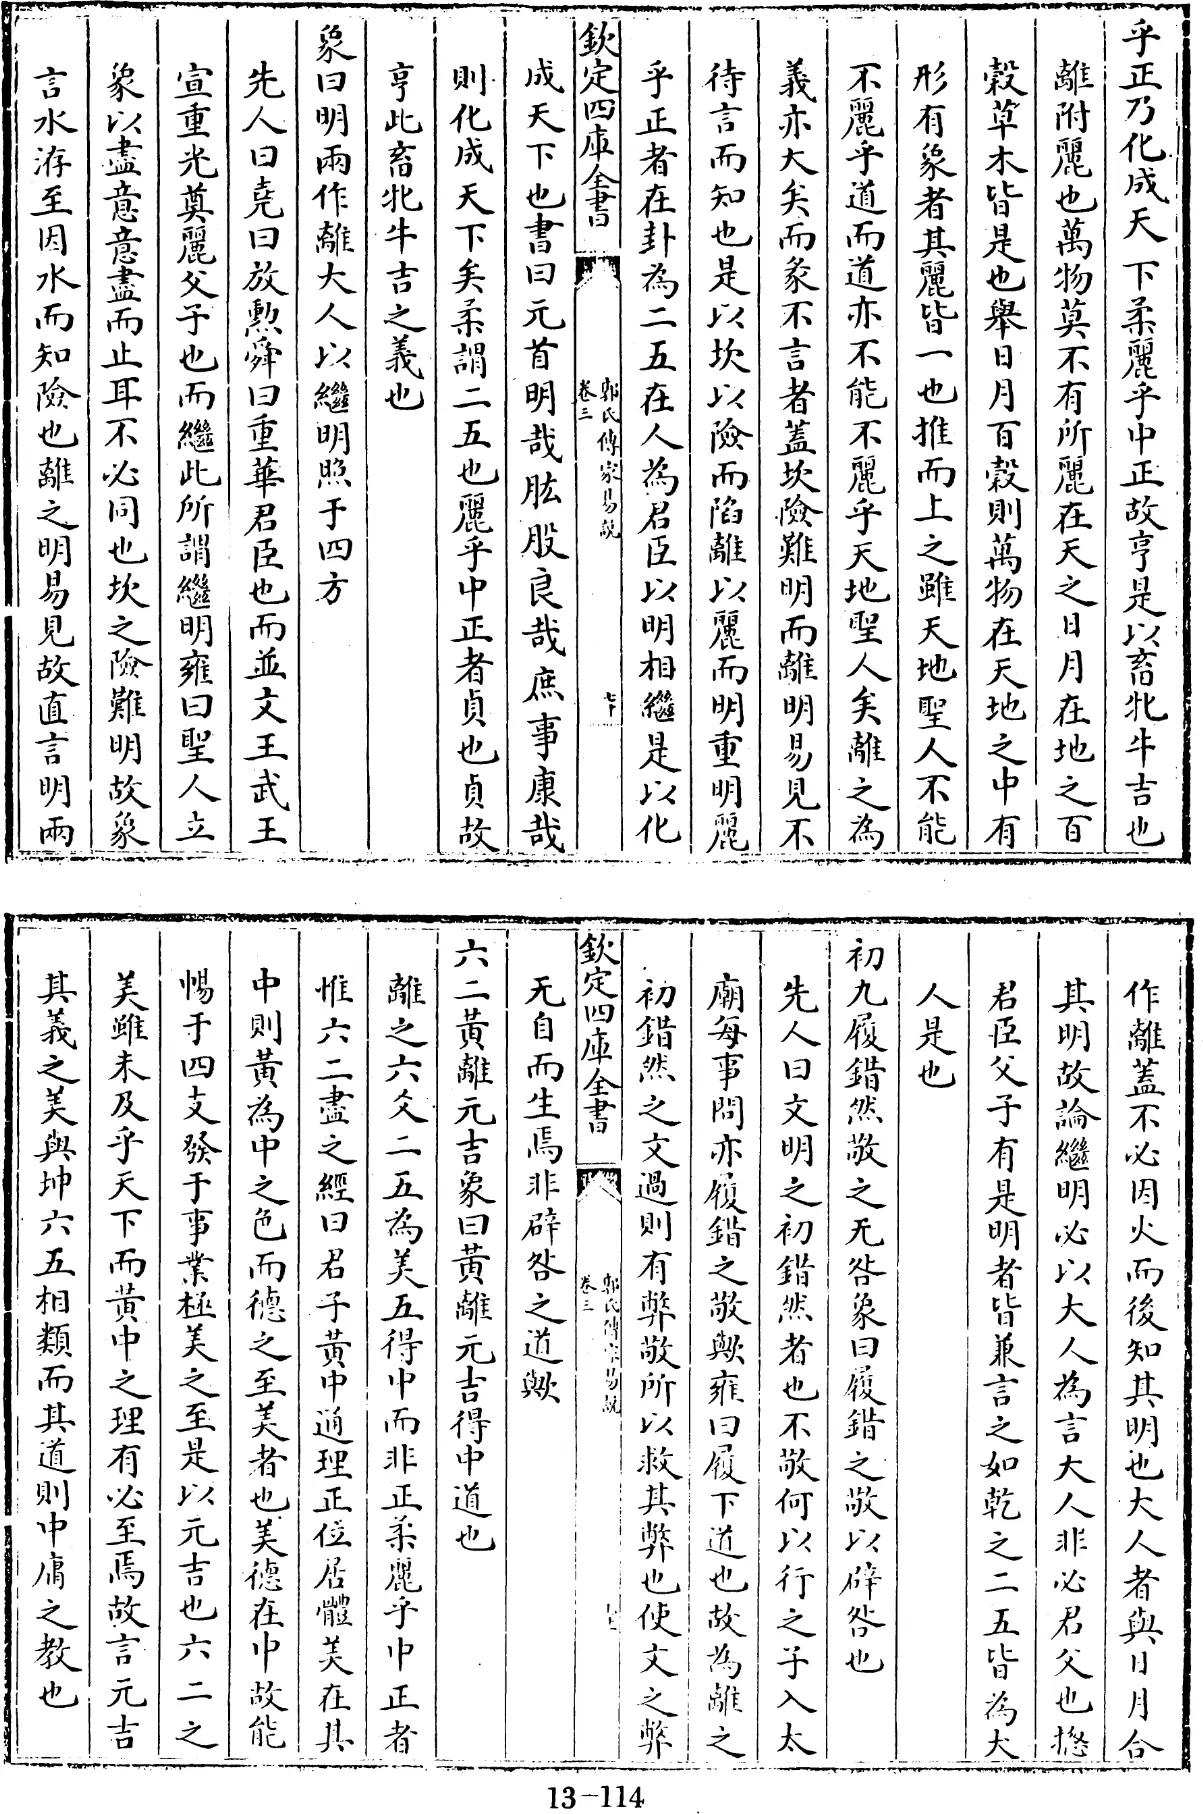 乎正乃化成天下柔麗乎中正故亨是以畜牝牛吉也
離附麗也萬物莫不有所麗在天之日月在地之百
穀草木皆是也舉日月百穀則萬物在天地之中有
形有象者其麗皆一也推而上之雖天地聖人不能
不麗乎道而道亦不能不麗乎天地聖人矣離之為
義亦大矣而彖不言者蓋坎險難明而離明易見不
待言而知也是以坎以險而陷離以麗而明重明麗
乎正者在卦為二五在人為君臣以明相繼是以化
欽定四庫全書
郭氏傳家易說
卷三
七十
成天下也書曰元首明哉肱股良哉庶事康哉
則化成天下矣柔謂二五也麗乎中正者貞也貞故
亨此畜牝牛吉之義也
象曰明兩作離大人以繼明照于四方
先人曰堯曰放勲舜曰重華君臣也而並文王武王
宣重光奠麗父子也而繼此所謂繼明雍曰聖人立
象以盡意意盡而止耳不必同也坎之險難明故象
言水洊至因水而知險也離之明易見故直言明兩
作離蓋不必因火而後知其明也大人者與日月合
其明故論繼明必以大人為言大人非必君父也摠
君臣父子有是明者皆兼言之如乾之二五皆為大
人是也
初九履錯然敬之无咎象曰履錯之敬以辟咎也
先人曰文明之初錯然者也不敬何以行之子入太
廟每事問亦履錯之敬歟雍曰履下道也故為離之
初錯然之文過則有弊敬所以救其弊也使文之弊
欽定四庫全書
郭氏傳家易說
卷三
无自而生焉非辟咎之道歟
六二黃離元吉象曰黃離元吉得中道也
離之六爻二五為美五得中而非正柔麗乎中正者
惟六二盡之經曰君子黃中通理正位居體美在其
中則黃為中之色而德之至美者也美德在中故能
暢于四支發于事業極美之至是以元吉也六二之
美雖未及乎天下而黃中之理有必至焉故言元吉
其義之美與坤六五相類而其道則中庸之教也
13-114